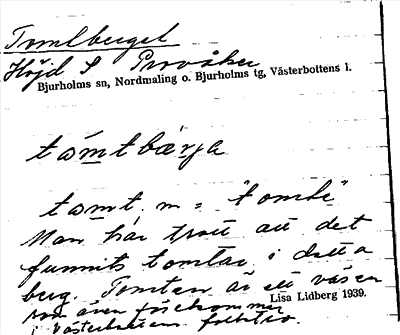 Tomtberget
Höjd S Provåker
Bjurholms sn, Nordmaling o. Bjurholms tg, Västerbottens l.
tåmtbærja
tåmt m = "tomte"
Man har trott att det
funnits tomtar i detta
berg. Tomten är ett väsen
som även förekommer
i Västerbottens folktro.
Lisa Lidberg 1939.